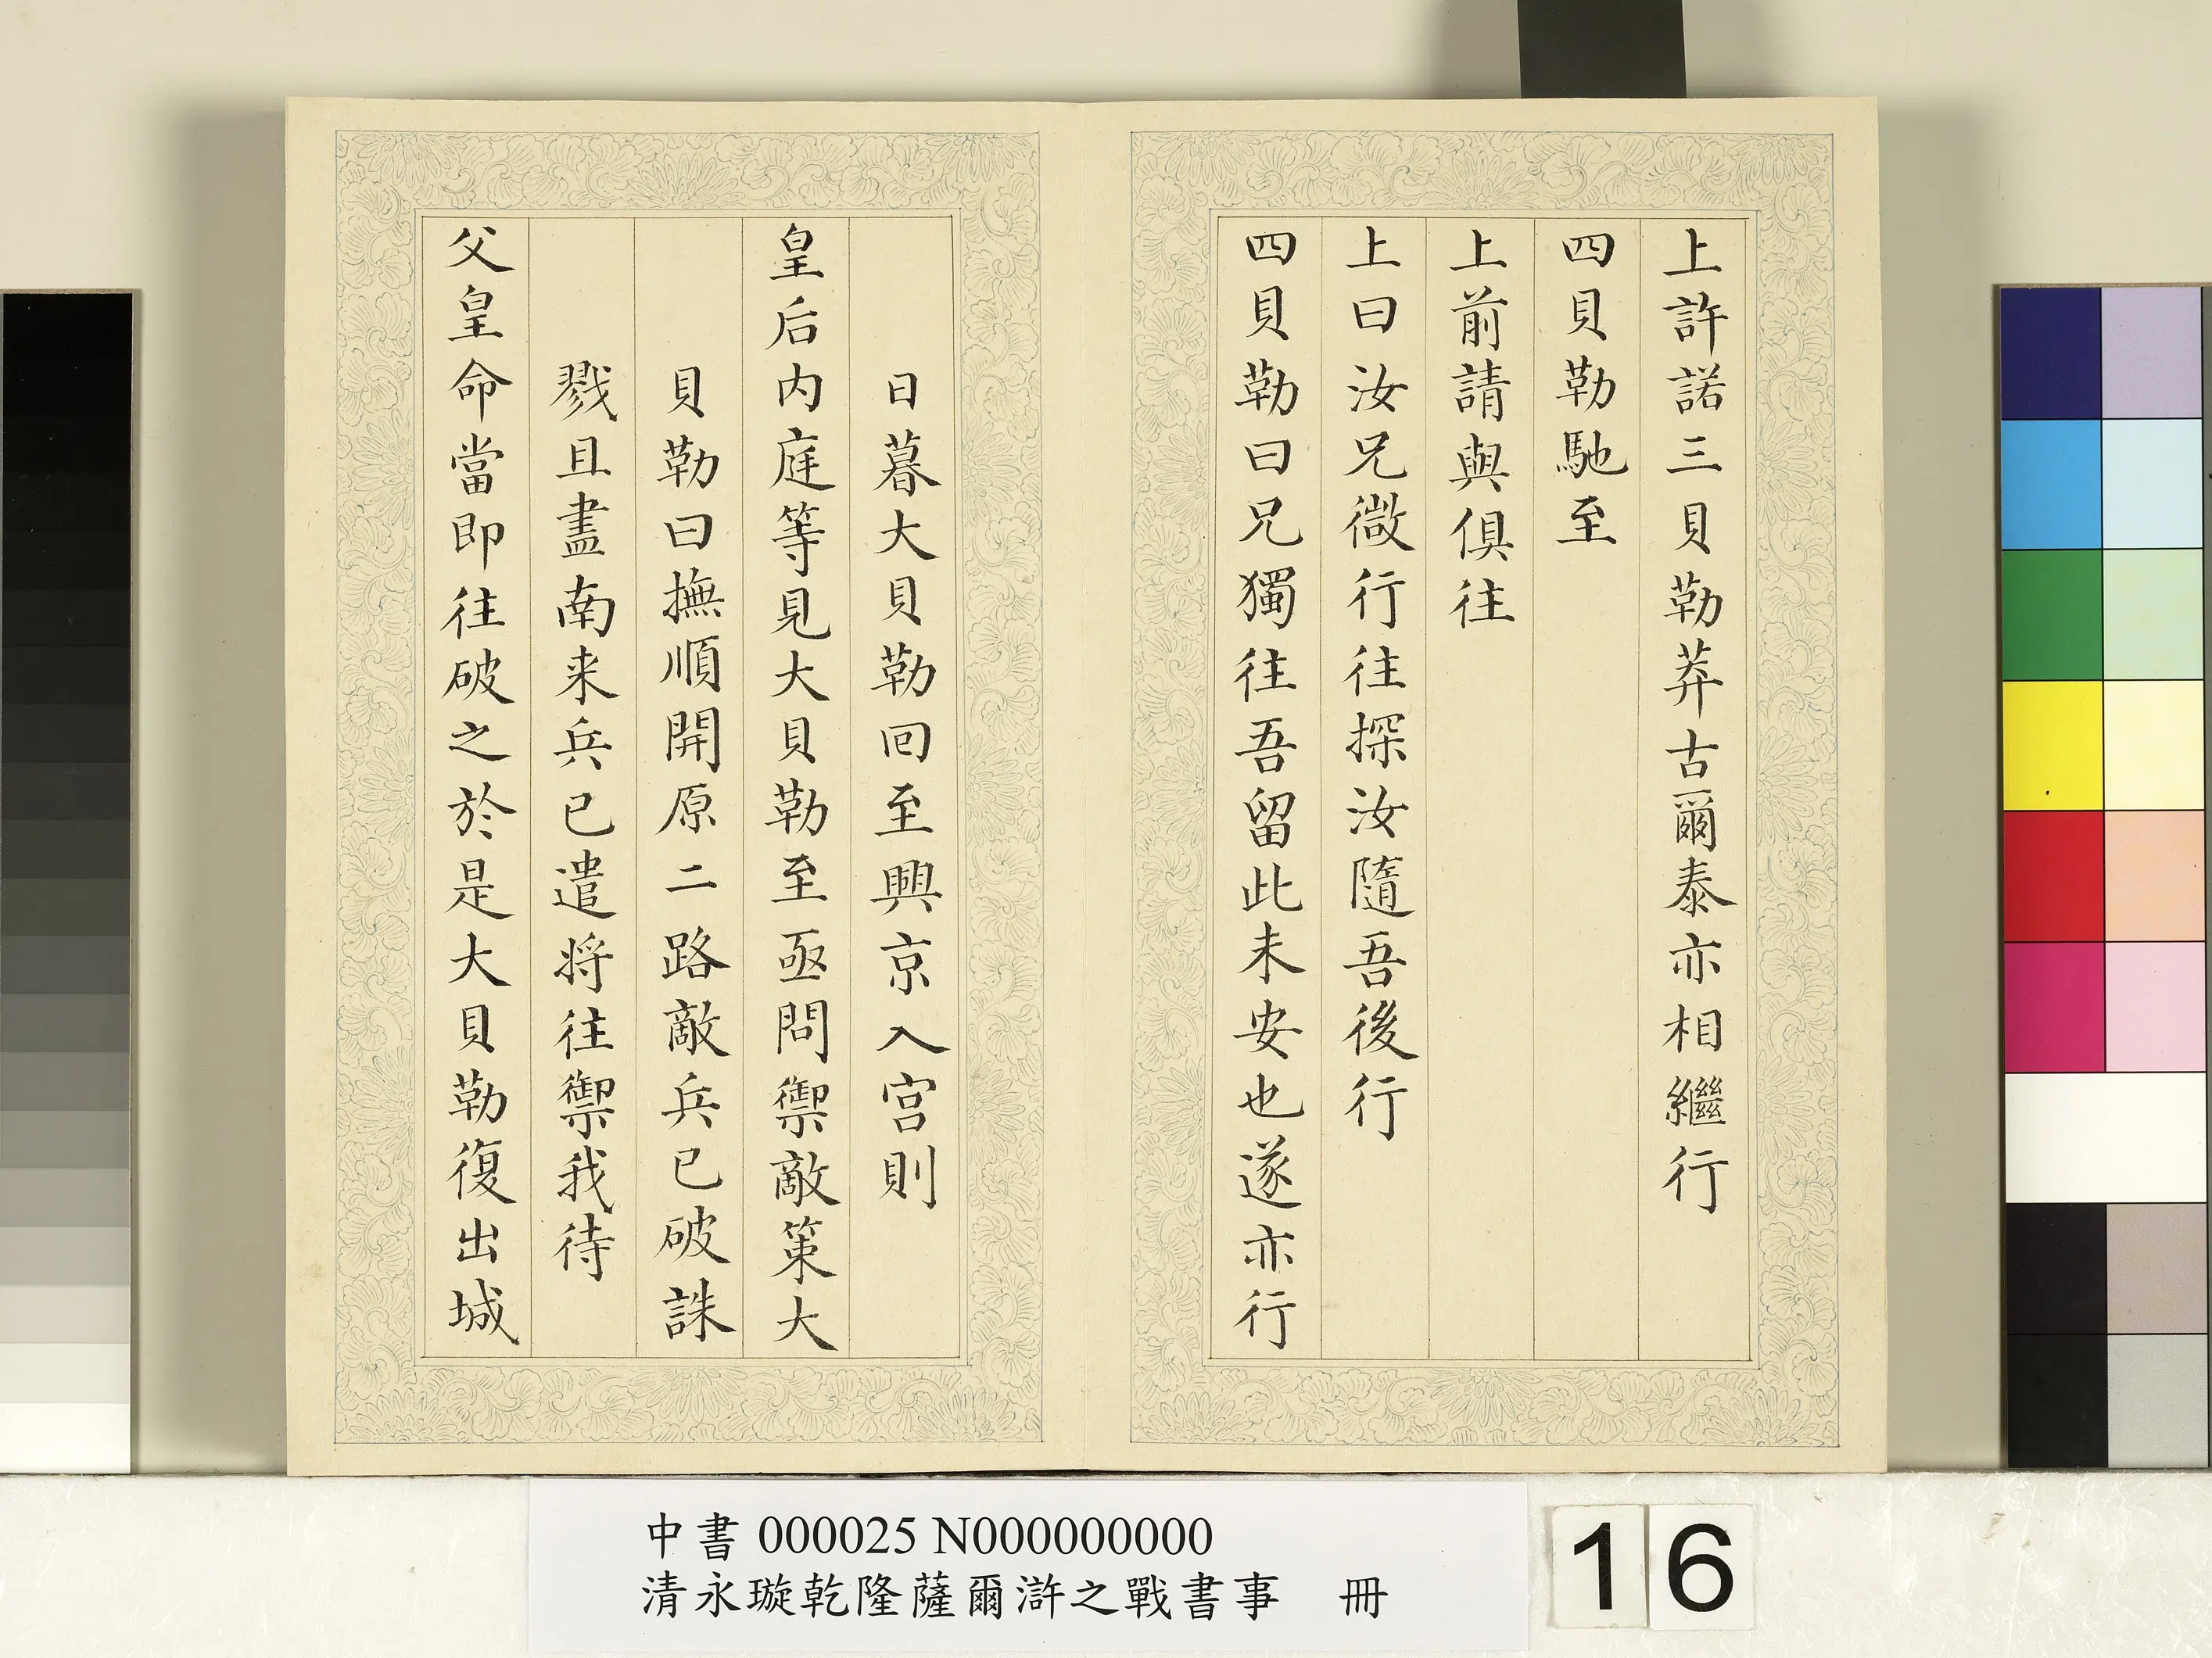 上許諾三貝勒莽古爾泰亦相繼行
四貝勒馳至
上前請與俱往
上曰汝兄微行往探汝隨吾後行
四貝勒曰兄獨往吾留此未安也遂亦行
日暮大貝勒回至興京入宮則
皇后内庭等見大貝勒至亟問禦敵策大
貝勒曰撫順開原二路敵兵已破誅
戮且盡南来兵已遣将往禦我待
父皇命當即往破之於是大貝勒復出城
中書 000025 N000000000
清永璇乾隆薩爾滸之戰書事 冊
16